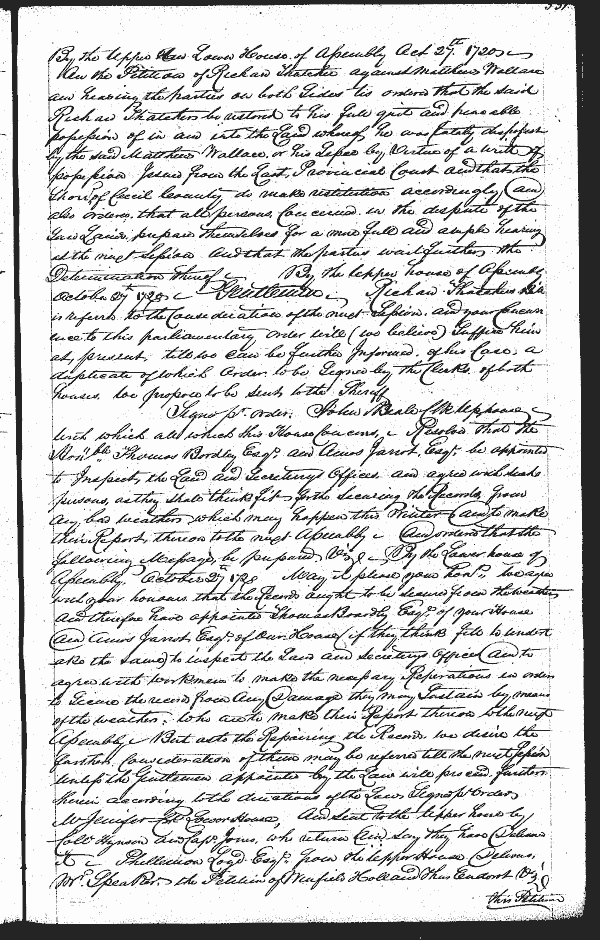 By the Upper and Lower House of Assembly Oct 27th 1720
On the Petition of Richard Thatcher against Matthew Wallace
and hearing the parties on both Sides tis ordered that the said
Richard Thatcher be restored to his full quiet and peaceable
possession of in and into the Land whereof he was lately dispossest
by the said Matthew Wallace, or his Lessee by Virtue of a writt of
possession Issued from the Last Provincial Court and that the
Sherr. of Cecil County do make restitution accordingly, and
also orders that all persons Concerned in the dispute of the
Said Land, prepare themselves for a more full and ample hearing
at the next Session And that the parties wait further the
Determination thereof By the Upper house of Assembly
October 27th 1720 Gentlemen Richard Thatchers
is referred to the Consideration of the next Session, and your Concur
rence to this parliamentary order will (we believe) Suffice him
at present till we can be further Informed of his Case, a
duplicate of which Order to be Signed by the Clerks of both
houses we propose to be sent to the Sheriff
Signed pr. order, John Beale Clk Up house
with which all which this House Concurrs, Resolved that the
Honble Thomas Bordley Esqr. and Amos Jarrot Esqr. be appointed
to Inspect the Land and Secretarys Offices and agree with such
persons, as they shall think fit for the securing the Records from
any bad weather which may happen this Winter and to make
their Report thereon to the next Assembly and orders that the
following Message be prepared Vizt. By the Lower house of
Assembly October 27th 1720 May it please your honrs. we agree
with your honours that the Records ought to be secured from the weather
and therefore have appointed Thomas Bordley Esqr. of your House
and Amos Jarrot Esqr. of Our House (if they think fitt to undert
ake the same) to inspect the Land and Secretarys Offices and to
agree with workmen to make the necessary Reparations in order
to Secure the record from Any Damage they may Sustain by means
of the weather, who are to make their Report thereon to the next
Assembly But as to the Repairing the Records we desire the
further Consideration of them may be referred till the next Session
unless the Gentlemen appointed by the Law will proceed further
therein according to the directions of the Law Signed pr Order
Mr Jenifer Lower House, And sent to the Upper house by
Collo. Hynson and Capt Jones, who return and say they have Deliverd
it Phillemon Loyd Esqr. from the Upper House Delivers
Mr. Speaker the Petition of Winifred Holland thus Endorst Vizt
this Petition